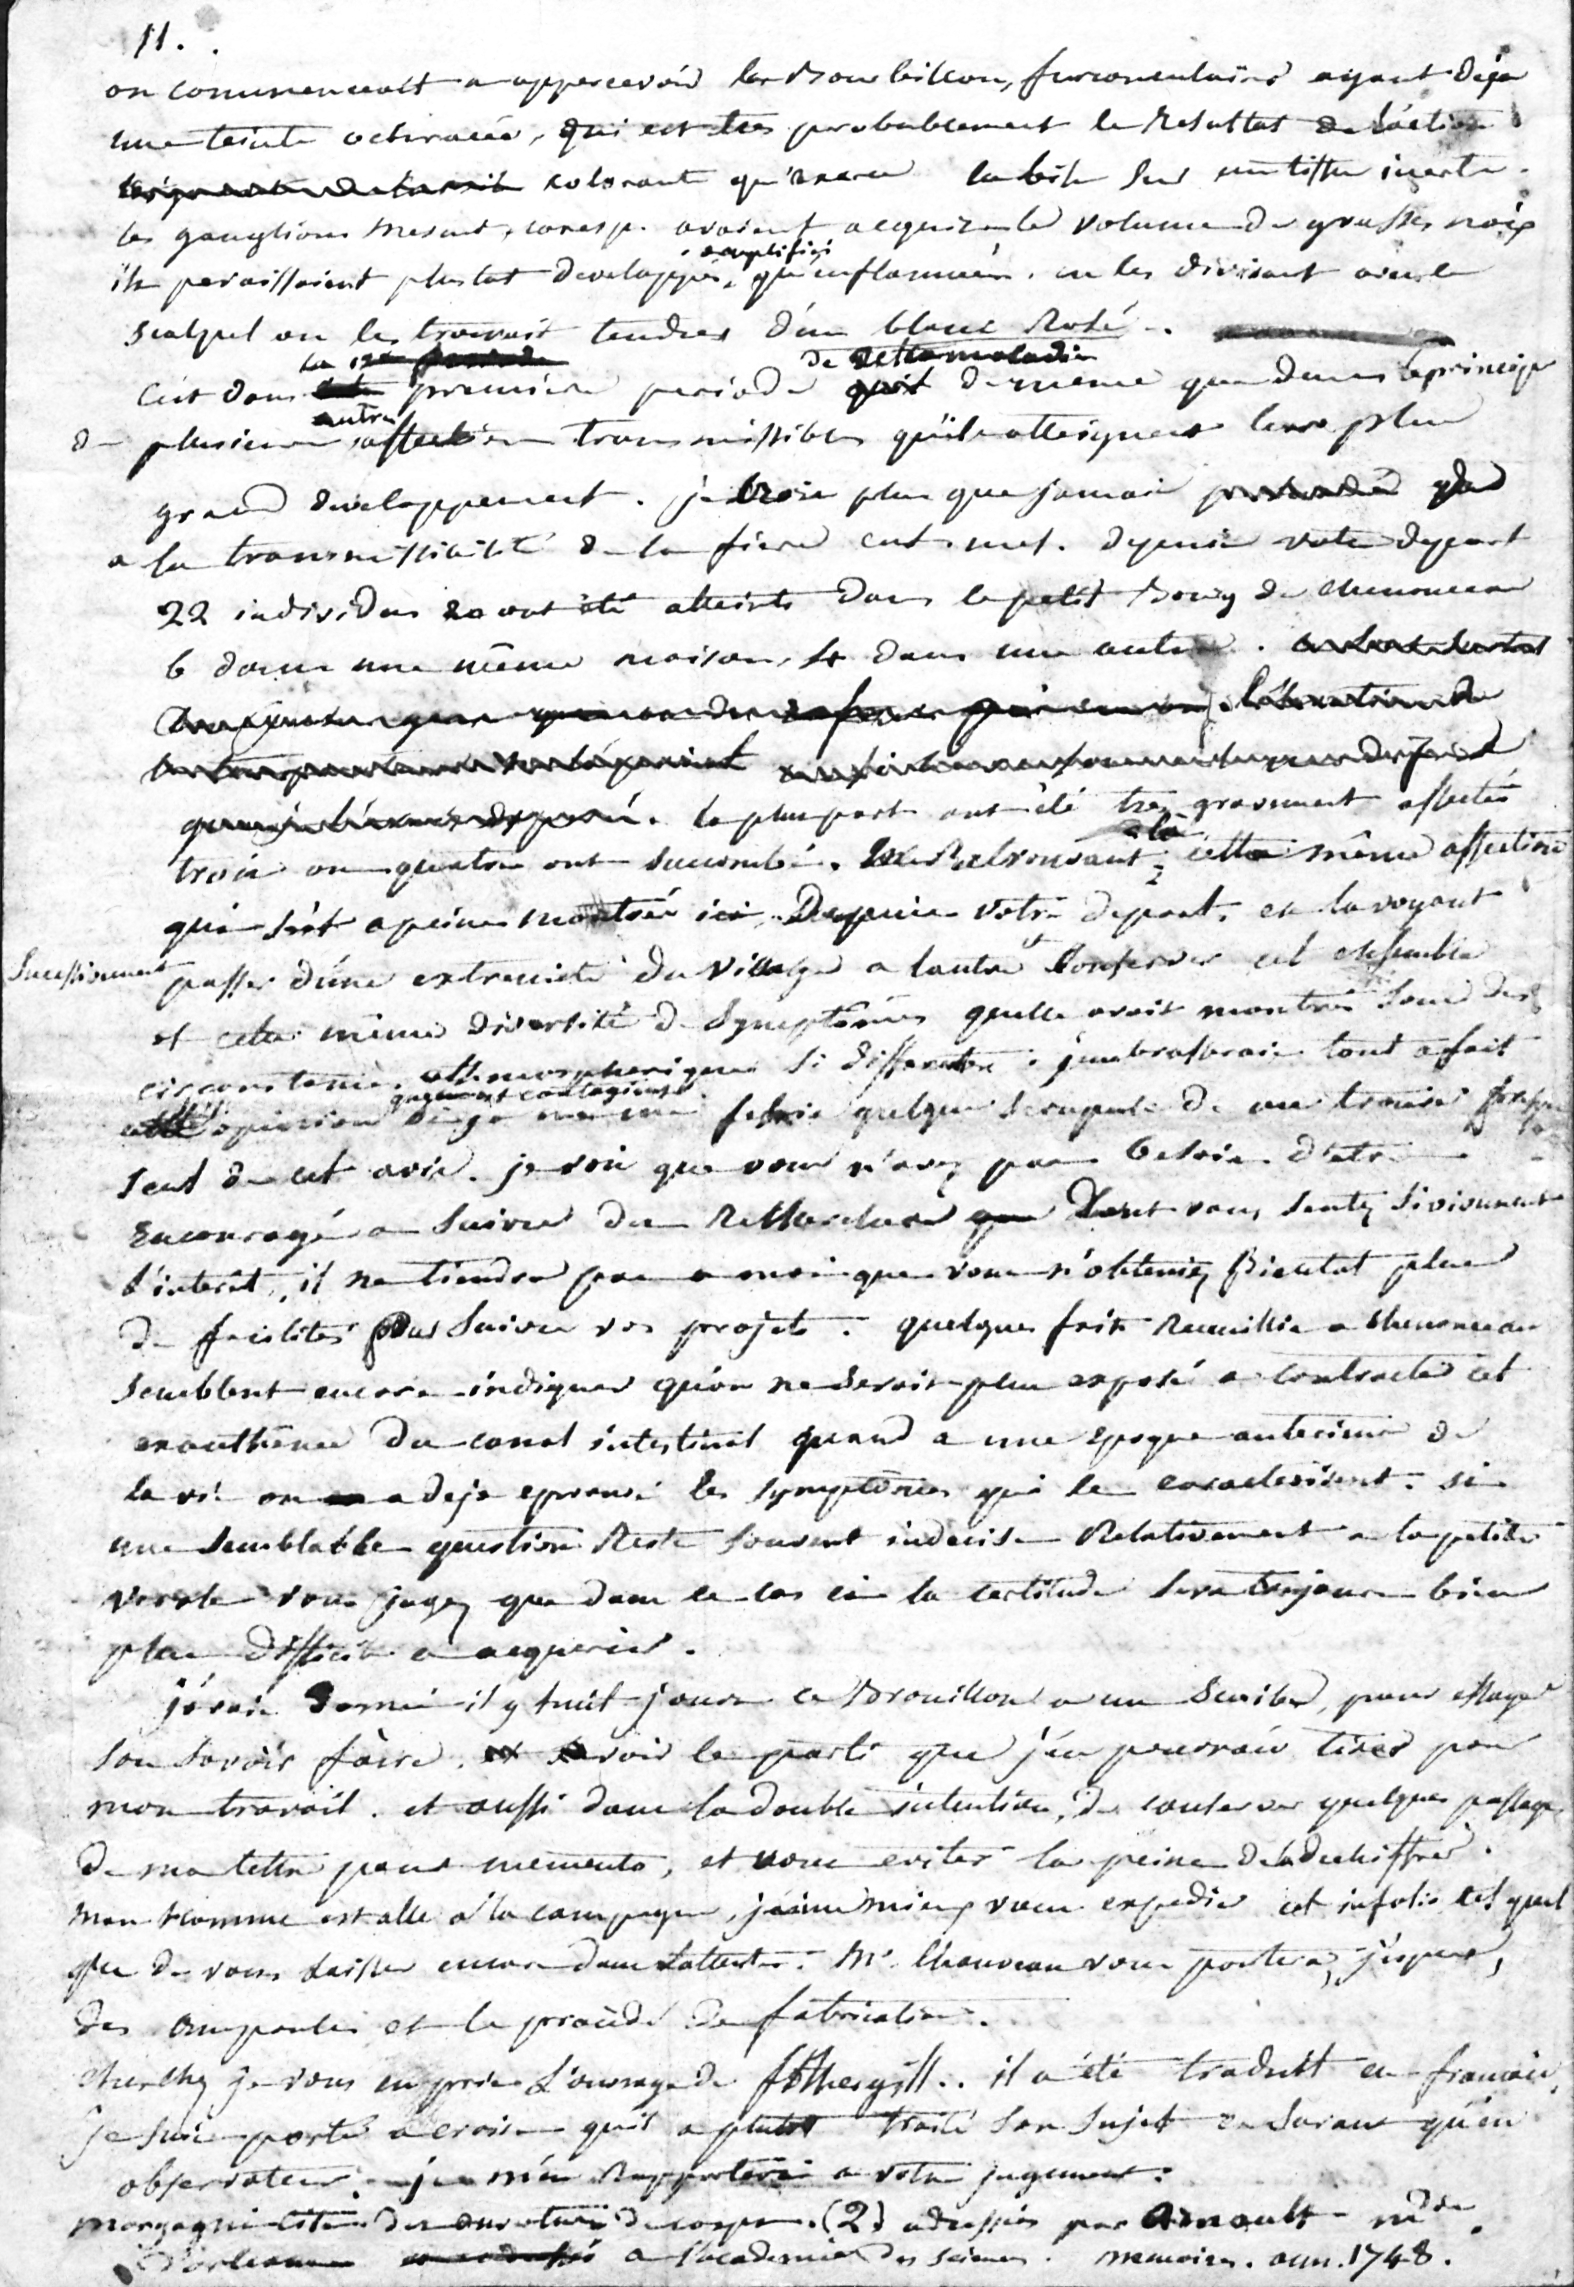 11.
on commencait a appercevoir les Bourbillons, furonculaires ayant deja
une teinte ochracée, qui est tres probablement le Resultat de l'action
colorante qu'exerce la bile sur un tissu inerte.
les ganglions mesent. coresp. avaient acquis le volume de grosses noix
amplifiés
ils paraissaient plustot developpés, qu'enflammés. en les divisant avec le
scalpel on les trouvait tendres d'un blanc Rosé.
la 1ere periode de cette maladie
C'est dans premiere periode de meme que dans le principe
autres
de plusieurs affections transmissibles qu'ils atteignent leur plus
grand developpement. je crois plus que jamais
a la transmissibilité de la fievre ent. mes. depuis votre depart
22 individus ont été atteints dans le petit Bourg de chenonceau
6 dans une même maison, 4 dans une autre.
la plupart ont été trez gravement affectés
trois ou quatre ont succombé. Retrouvant là cette même affection
qui s'est a peine montrée ici Depuis votre depart. en la voyant
Successivement passer d'une extremité du village a l'autre et conserver cet ensemble
et cette même diversité de symptômes quelle avait montrée sous des
circonstances atmospheriques si differentes j'embrasserais tout a fait
cette opinion si je ne me faisais quelque scrupule de me trouver presque
seul de cet avis. je vois que vous n'avez pas besoin d'etre
Encouragé a suivre des Recherches dont vous sentez si vivement
l'interêt, il ne tiendra pas a moi que vous n'obteniez Bientot plus
de facilités pour suivre vos projets. quelques faits Recueillis a chenonceau
semblent encore indiquer qu'on ne serait plus exposé a contracter cet
exanthême du canal intestinal quand a une epoque anterieure de
la vie on a deja eprouvé les symptômes qui le caracterisent. si
une semblable question Reste souvent indecise Relativement a la petite
verole vous jugez que dans ce cas ci la certitude sera toujours bien
plus difficile a acquerir.
j'avais donné il y huit jours ce Brouillon a un scribe, pour essayer
son savoir faire, voir le parti que j'en pourrais tirer pour
mon travail. et aussi dans la double intention, de conserver quelques passages
de ma lettre pour memento, et vous eviter la peine de la dechiffrer.
mon homme est allé à la campagne, j'aime mieux vous expedier cet infolio tel quel
que de vous laisser encore dans l'attente. Mr. Chauveau vous portera, j'espere,
des ampoules et le procédé de fabrication.
cherchez je vous en prie l'ouvrage de fothergyll.. il a été traduit en francais,
je suis porté a croire qu'il a plutot traité son sujet en savant qu'en
observateur. je m'en Rapporterai a votre jugement.
morgagni cite des ouvertures de corps. (2) adressées par Arnault md de
d'orleans a l'academie des sciences. memoires. ann. 1748.